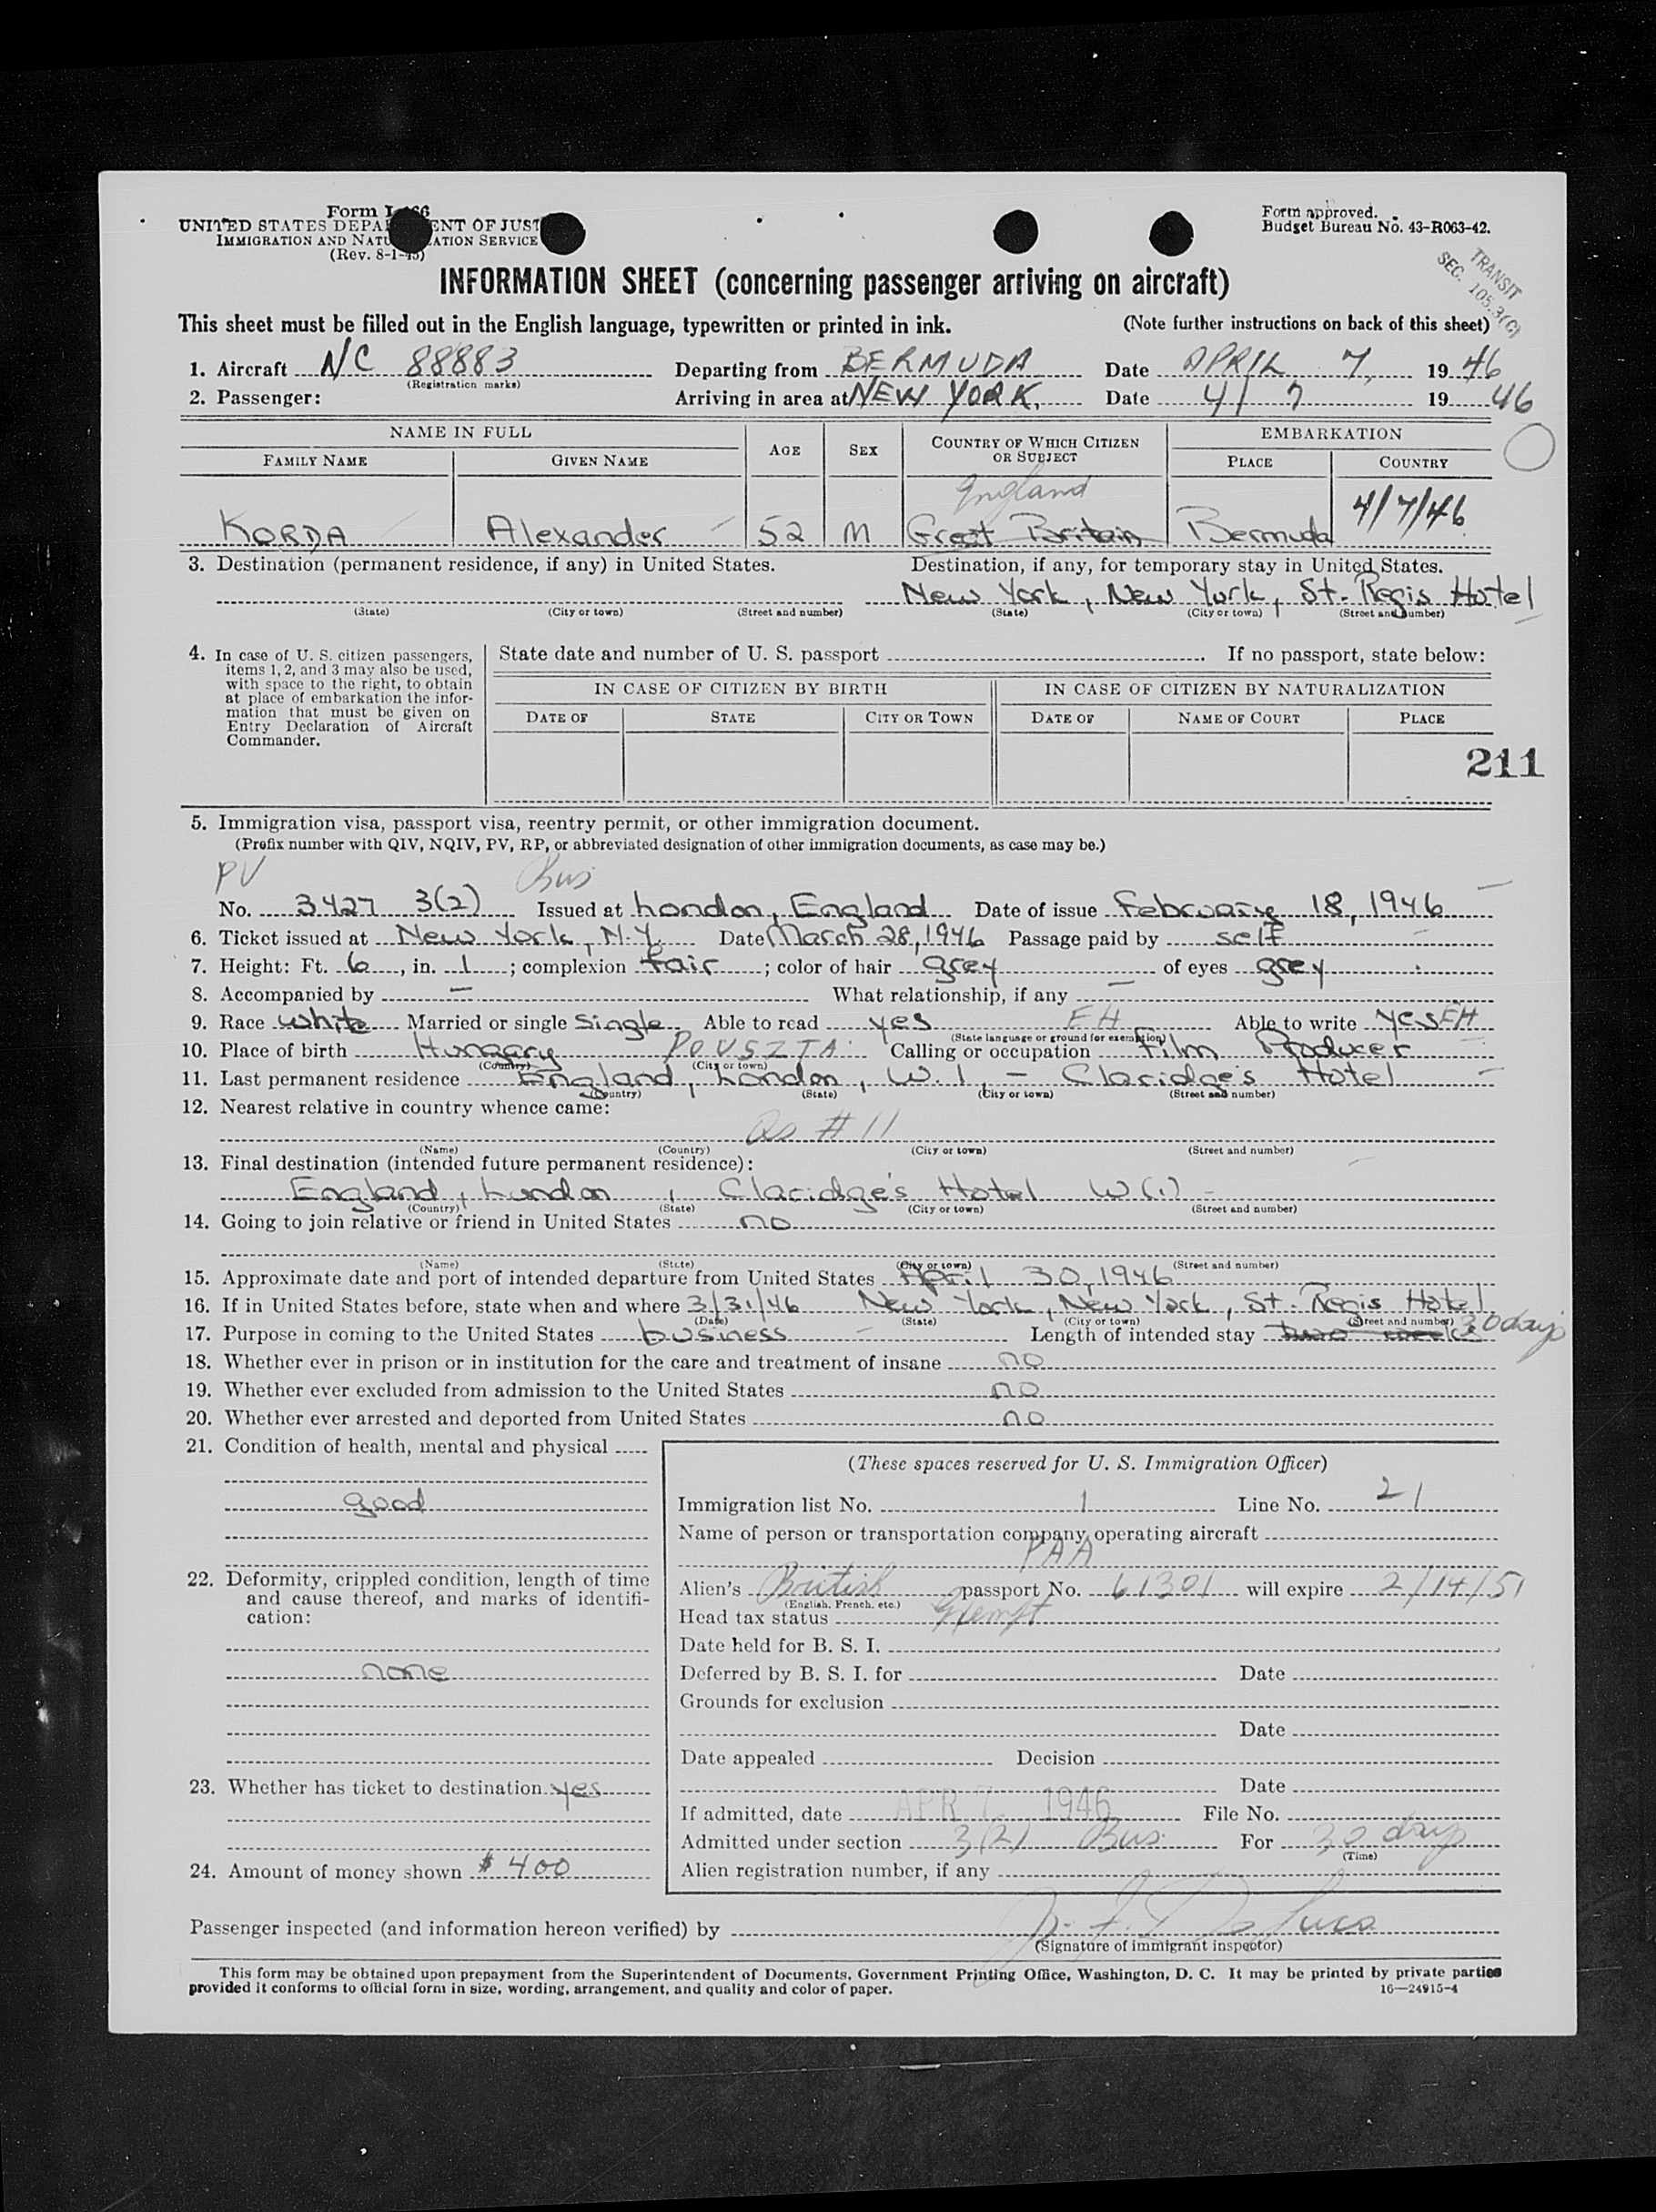 Form I-466
UNITED STATES DEPA ENT OF JUST
IMMIGRATION AND NATU ATION SERVICE
(Rev. 8-1-45)
Form approved.
Budget Bureau No. 43-R063-42.
TRANSIT
SEC. 105.3(C)
INFORMATION SHEET (concerning passenger arriving on aircraft)
This sheet must be filled out in the English language, typewritten or printed in ink. (Note further instructions on back of this sheet)
1. Aircraft NC 88883 Departing from BERMUDA Date APRIL 7, 1946
(Registration marks)
2. Passenger: Arriving in area at NEW YORK. Date 4/7 1946
NAME IN FULL AGE SEX COUNTRY OF WHICH CITIZEN OR SUBJECT EMBARKATION
FAMILY NAME GIVEN NAME PLACE COUNTRY
England
KORDA Alexander 52 M Great Britain Bermuda 4/7/46
3. Destination (permanent residence, if any) in United States. Destination, if any, for temporary stay in United States.
New York, New York, St. Regis Hotel
(State) (City or town) (Street and number) (State) (City or town) (Street and number)
4. In case of U. S. citizen passengers, items 1, 2, and 3 may also be used, with space to the right, to obtain at place of embarkation the information that must be given on Entry Declaration of Aircraft Commander.
State date and number of U. S. passport . If no passport, state below:
IN CASE OF CITIZEN BY BIRTH IN CASE OF CITIZEN BY NATURALIZATION
DATE OF STATE CITY OR TOWN DATE OF NAME OF COURT PLACE
211
5. Immigration visa, passport visa, reentry permit, or other immigration document.
(Prefix number with QIV, NQIV, PV, RP, or abbreviated designation of other immigration documents, as case may be.)
PV Bus
No. 3427 3(2) Issued at London, England Date of issue February 18, 1946
6. Ticket issued at New York, N.Y. Date March 28, 1946 Passage paid by self
7. Height: Ft. 6, in. 1; complexion fair; color of hair grey of eyes grey
8. Accompanied by — What relationship, if any —
9. Race white Married or single Single Able to read yes EH Able to write yes EH
(State language or ground for exemption)
10. Place of birth Hungary POUSZTA Calling or occupation Film Producer
(Country) (City or town)
11. Last permanent residence England, London, W.1, - Claridge's Hotel
(Country) (State) (City or town) (Street and number)
12. Nearest relative in country whence came:
as # 11
(Name) (Country) (City or town) (Street and number)
13. Final destination (intended future permanent residence):
England, London, Claridge's Hotel W(1) -
(Country) (State) (City or town) (Street and number)
14. Going to join relative or friend in United States no
(Name) (State) (City or town) (Street and number)
15. Approximate date and port of intended departure from United States April 30, 1946
16. If in United States before, state when and where 3/31/46 New York, New York, St. Regis Hotel
(Date) (State) (City or town) (Street and number)
17. Purpose in coming to the United States business Length of intended stay two weeks 30 days
18. Whether ever in prison or in institution for the care and treatment of insane no
19. Whether ever excluded from admission to the United States no
20. Whether ever arrested and deported from United States no
21. Condition of health, mental and physical
good
22. Deformity, crippled condition, length of time and cause thereof, and marks of identification:
none
23. Whether has ticket to destination yes
24. Amount of money shown $400
(These spaces reserved for U. S. Immigration Officer)
Immigration list No. 1 Line No. 21
Name of person or transportation company operating aircraft
PAA
Alien's British passport No. 61301 will expire 2/14/51
(English, French, etc.)
Head tax status Exempt
Date held for B. S. I.
Deferred by B. S. I. for Date
Grounds for exclusion
Date
Date appealed Decision
Date
If admitted, date APR 7 1946 File No.
Admitted under section 3(2) Bus For 30 days
(Time)
Alien registration number, if any
Passenger inspected (and information hereon verified) by
(Signature of immigrant inspector)
This form may be obtained upon prepayment from the Superintendent of Documents, Government Printing Office, Washington, D. C. It may be printed by private parties
provided it conforms to official form in size, wording, arrangement, and quality and color of paper. 16—24915-4